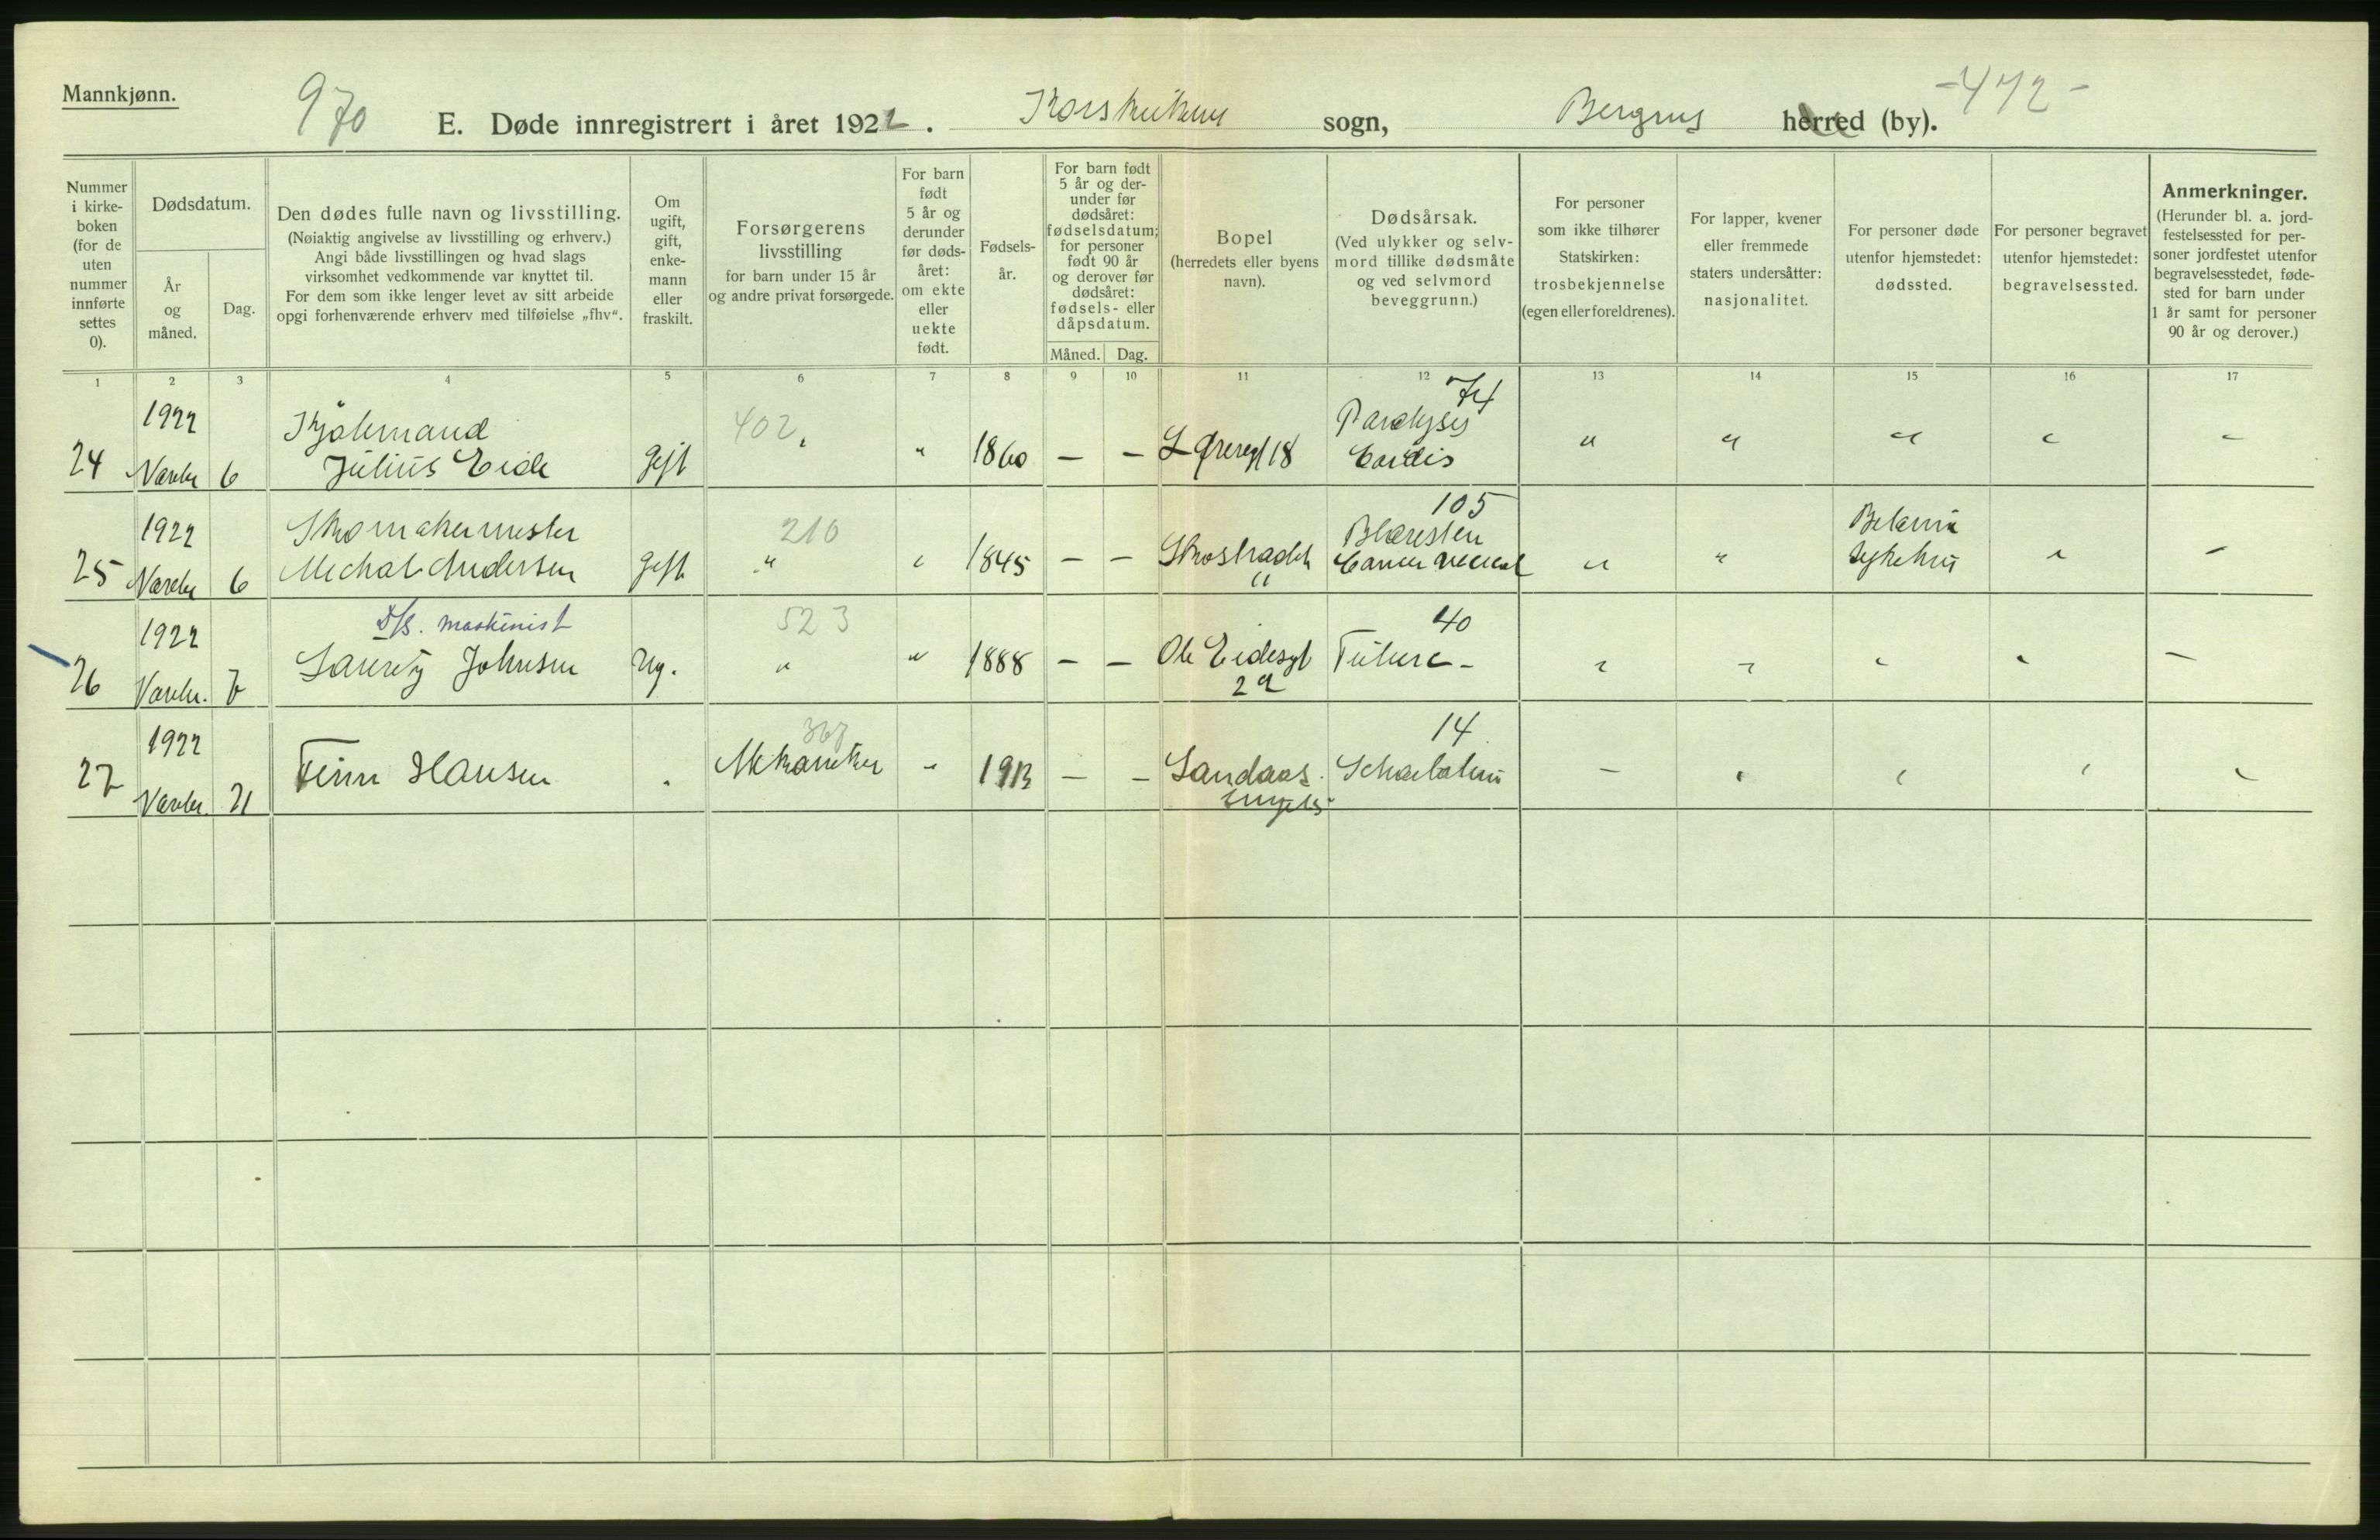 Mannkjønn.
970
E. Døde innregistrert i året 1922. Korskirkens sogn, Bergens herred (by).
-472-
Nummer i kirkeboken (for de uten nummer innførte settes 0).
Dødsdatum.
År og måned.
Dag.
Den dødes fulle navn og livsstilling.
(Nøiaktig angivelse av livsstilling og erhverv.)
Angi både livsstillingen og hvad slags
virksomhet vedkommende var knyttet til.
For dem som ikke lenger levet av sitt arbeide
opgi forhenværende erhverv med tilføielse „fhv“.
Om ugift, gift, enkemann eller fraskilt.
Forsørgerens livsstilling
for barn under 15 år
og andre privat forsørgede.
For barn født 5 år og derunder før dødsåret: om ekte eller uekte født.
Fødselsår.
For barn født 5 år og derunder før dødsåret: fødselsdatum; for personer født 90 år og derover før dødsåret: fødsels- eller dåpsdatum.
Måned. Dag.
Bopel
(herredets eller byens navn).
Dødsårsak.
(Ved ulykker og selvmord tillike dødsmåte og ved selvmord beveggrunn.)
For personer som ikke tilhører Statskirken: trosbekjennelse (egen eller foreldrenes).
For lapper, kvener eller fremmede staters undersåtter: nasjonalitet.
For personer døde utenfor hjemstedet: dødssted.
For personer begravet utenfor hjemstedet: begravelsessted.
Anmerkninger.
(Herunder bl. a. jordfestelsessted for personer jordfestet utenfor begravelsesstedet, fødested for barn under 1 år samt for personer 90 år og derover.)
1 2 3 4 5 6 7 8 9 10 11 12 13 14 15 16 17
1922 Kjøkemand 402. Paralysis 74
24 Novbr 6 Julius Eide Gift " 1860 — — L Øvregt 18 Cordis " " " " -
1922 Skomakermester 210 Blæresten 105 Betania
25 Novbr 6 Michal Andersen Gift " " 1845 — — Skostrædet Cancer " " Sykehus " -
"
1922 D/S. maskinist 523 40
26 Novbr. 7 Lauritz Johnsen Ug. " " 1888 — — Ole Eidesgt Tuberc- " " " " —
29
1922 367 14
27 Novbr. 21 Finn Hansen " Mekaniker " 1913 — — Sandaas - " " " "